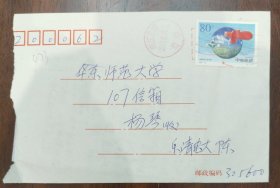 200062
80
中国邮政
华东师范大学
107信箱
杨琴(收)
乐清 陈
邮政编码 325600